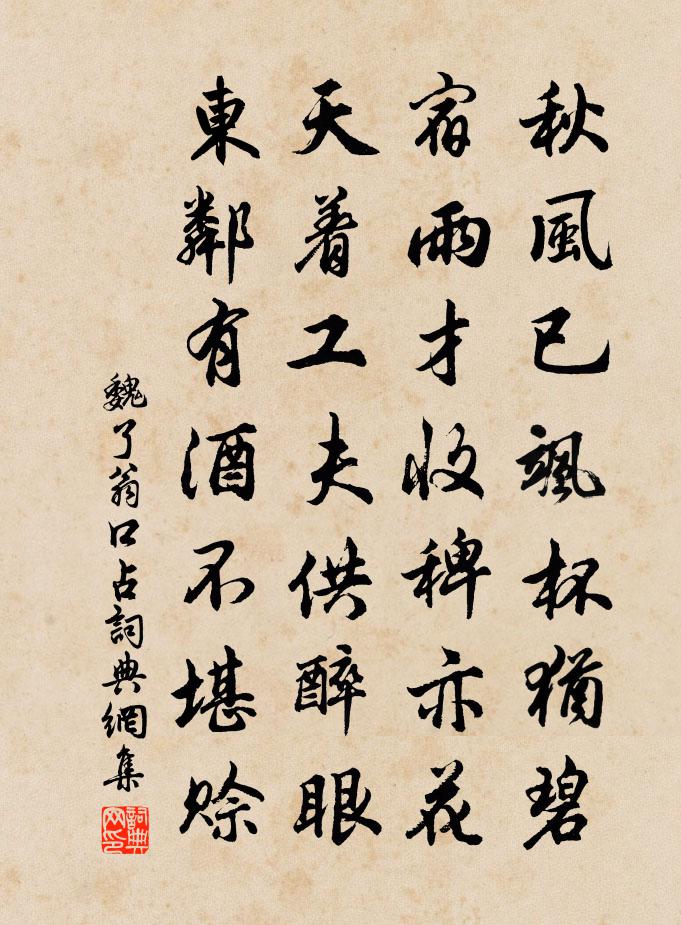 秋風已颯杯猶碧
宿雨才收稗亦花
天着工夫供醉眼
東鄰有酒不堪賒
魏了翁口占詞典網集
詞典网印